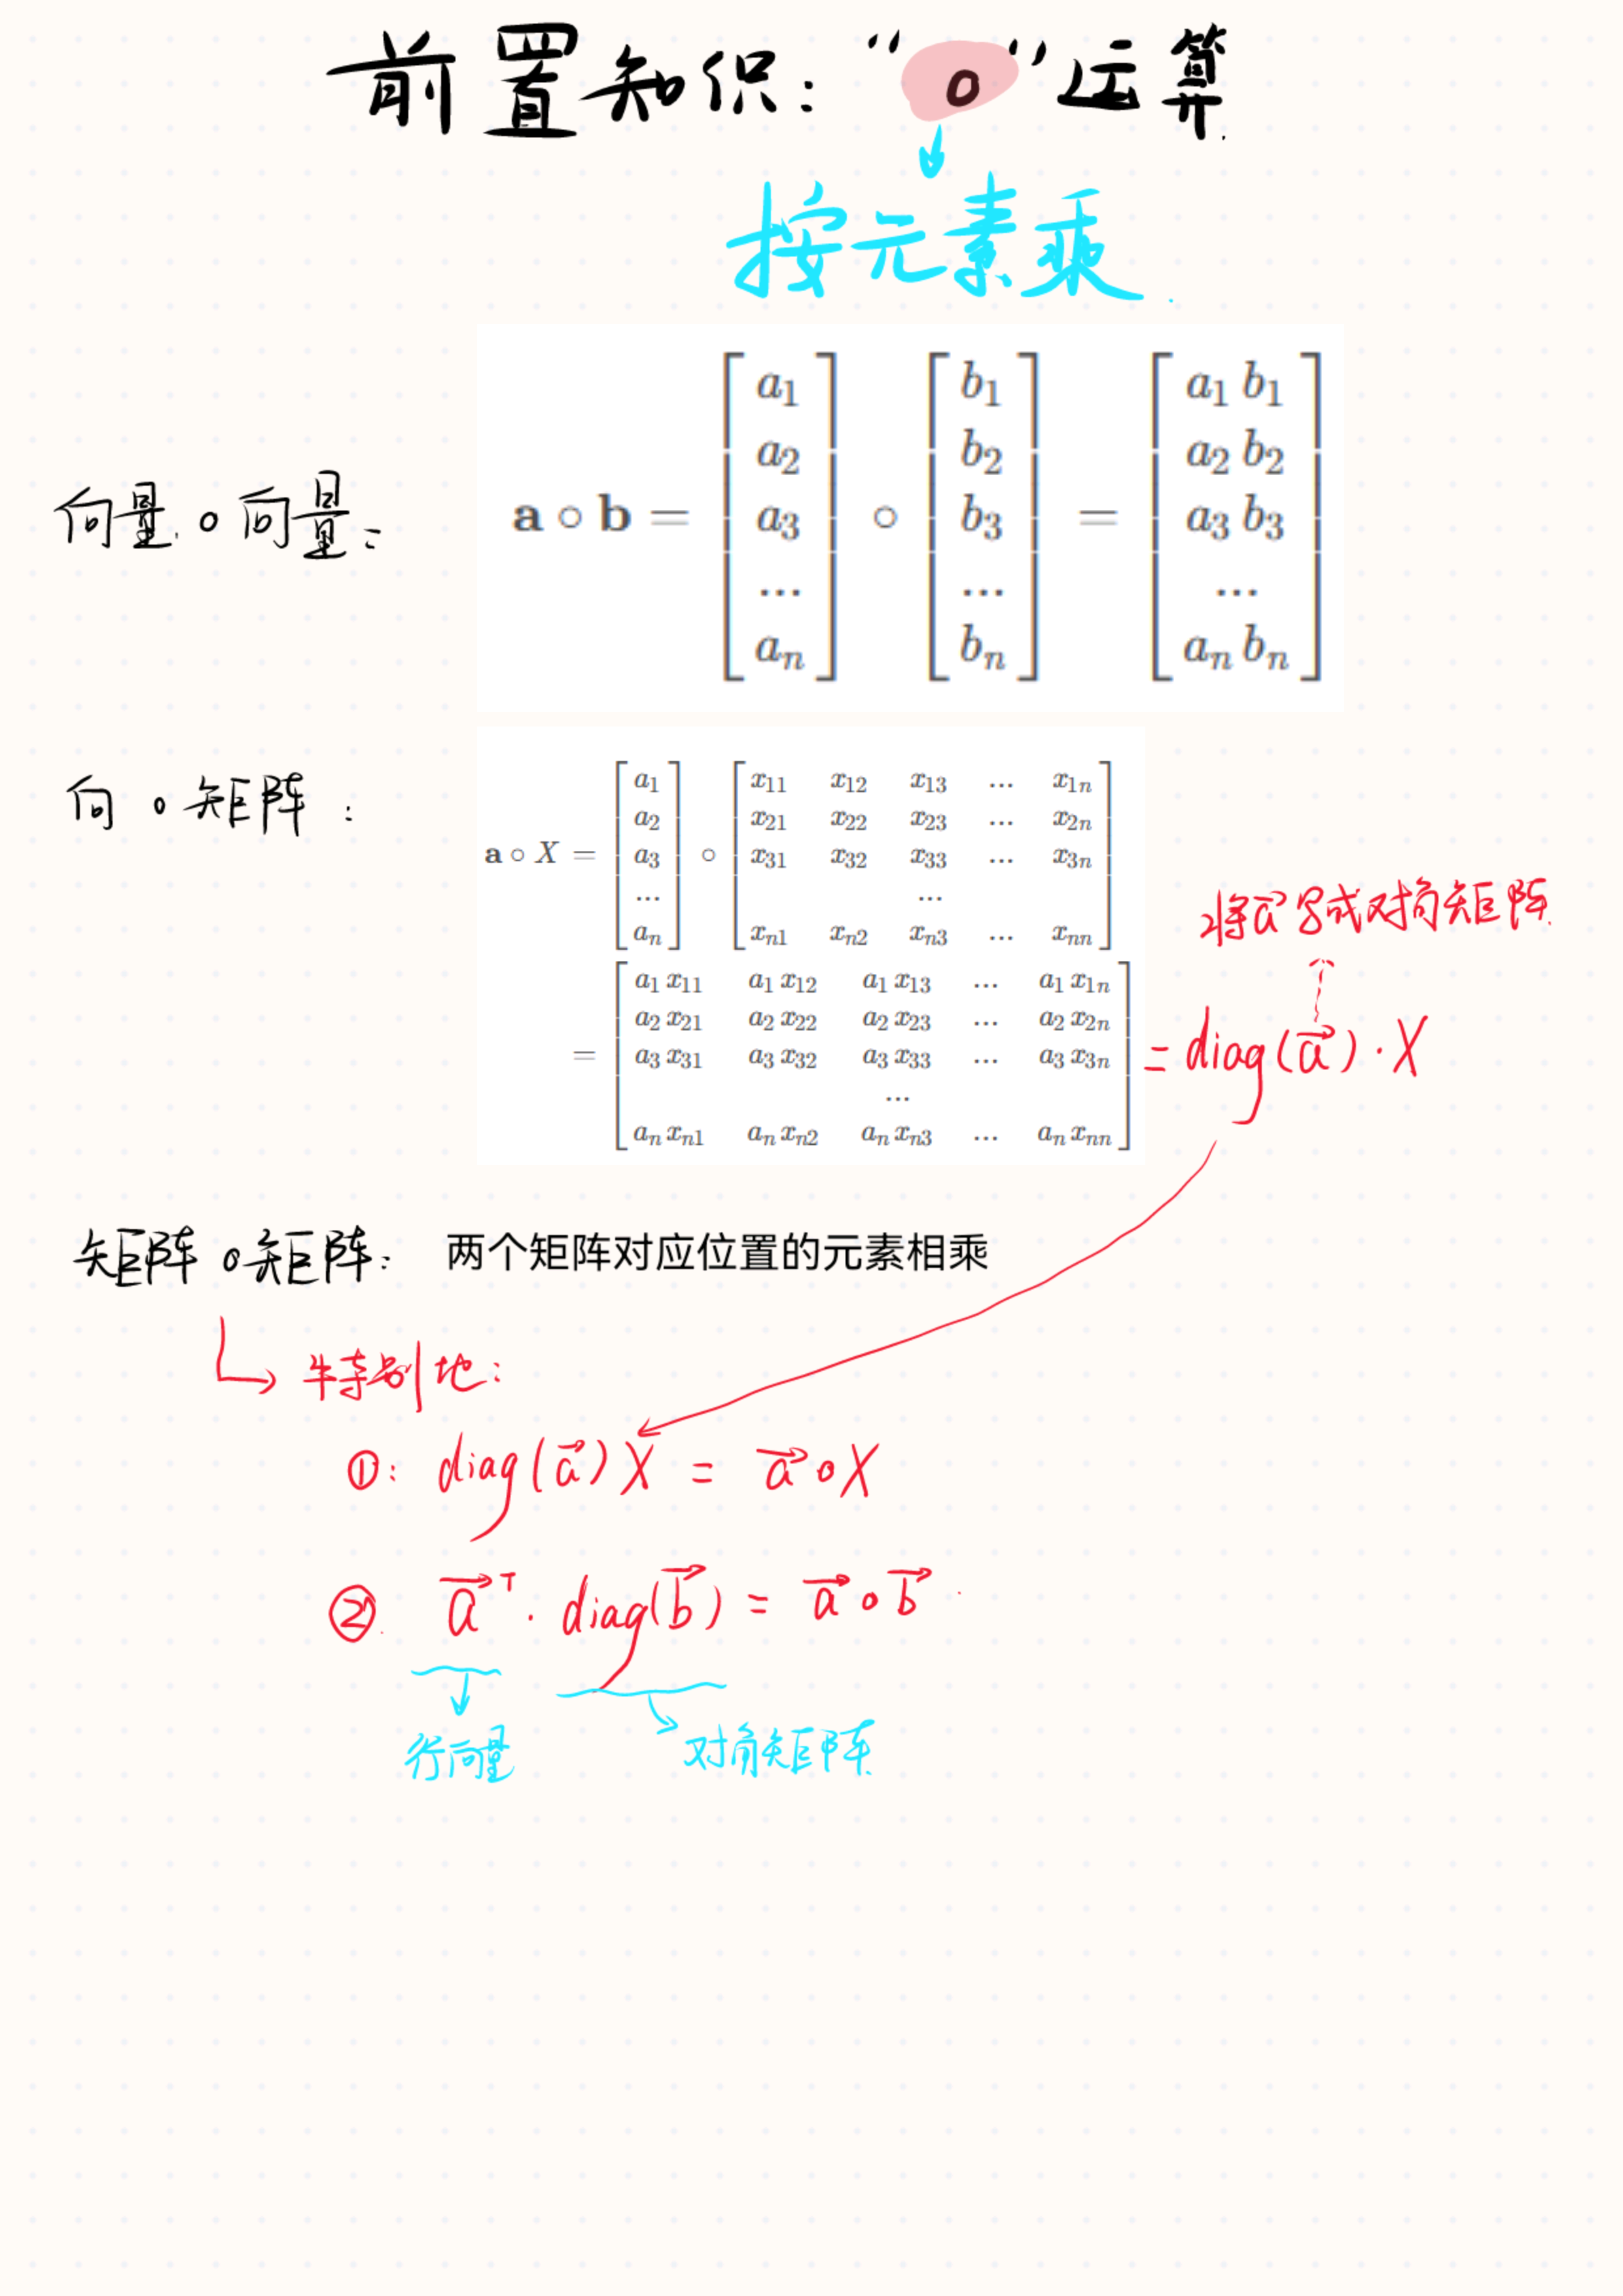 前置知识：“∘”运算.
按元素乘.
向量∘向量：
a ∘ b = [a₁ a₂ a₃ ... aₙ] ∘ [b₁ b₂ b₃ ... bₙ] = [a₁b₁ a₂b₂ a₃b₃ ... aₙbₙ]
向∘矩阵：
a ∘ X = [a₁ a₂ a₃ ... aₙ] ∘
[x₁₁ x₁₂ x₁₃ ... x₁ₙ
x₂₁ x₂₂ x₂₃ ... x₂ₙ
x₃₁ x₃₂ x₃₃ ... x₃ₙ
...
xₙ₁ xₙ₂ xₙ₃ ... xₙₙ]
将a⃗写成对角矩阵
= [a₁x₁₁ a₁x₁₂ a₁x₁₃ ... a₁x₁ₙ
a₂x₂₁ a₂x₂₂ a₂x₂₃ ... a₂x₂ₙ
a₃x₃₁ a₃x₃₂ a₃x₃₃ ... a₃x₃ₙ
...
aₙxₙ₁ aₙxₙ₂ aₙxₙ₃ ... aₙxₙₙ]
= diag(a⃗)·X
矩阵∘矩阵： 两个矩阵对应位置的元素相乘
特别地：
①： diag(a⃗)X = a⃗∘X
②. a⃗ᵀ· diag(b⃗) = a⃗∘b⃗.
行向量 对角矩阵